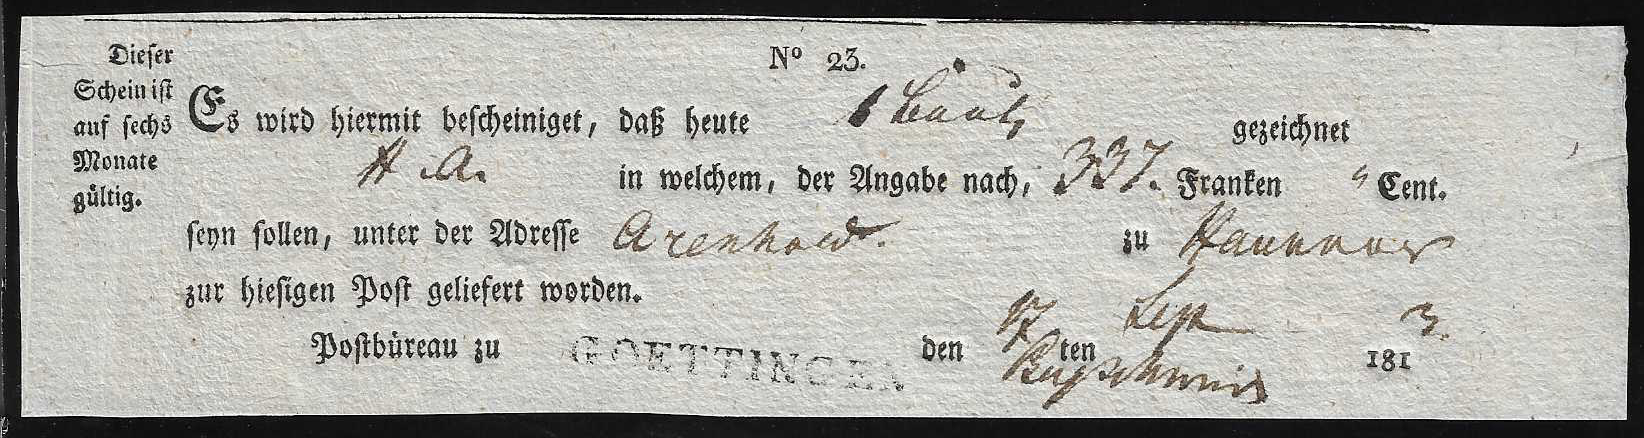 Dieser
Schein ist
auf sechs
Monate
gültig.
No 23.
Es wird hiermit bescheiniget, daß heute 1 gezeichnet
H A. in welchem, der Angabe nach, 337. Franken " Cent.
seyn sollen, unter der Adresse Arenhold. zu Hannover
zur hiesigen Post geliefert worden.
Postbüreau zu GOETTINGEN den 17 ten Sept 1813.